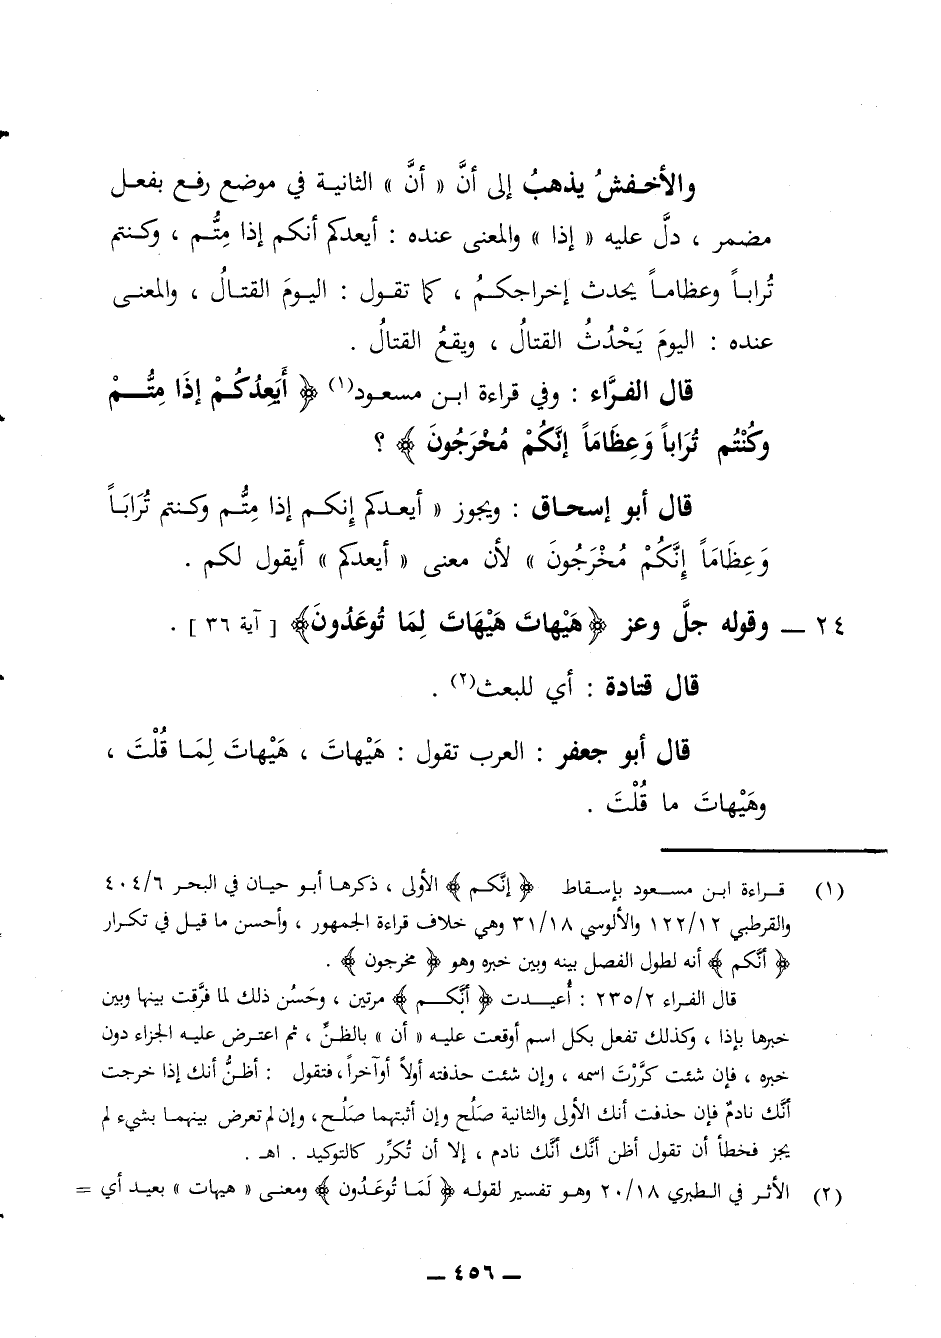 والأخفشُ يذهبُ إلى أنَّ « أنَّ » الثانية في موضع رفع بفعل
مضمر ، دلَّ عليه « إذا » والمعنى عنده : أيعدكم أنكم إذا مِتُّم ، وكنتم
تُراباً وعظاماً يحدث إخراجكمُ ، كما تقول : اليومَ القتالُ ، والمعنى
عنده : اليومَ يَحْدُثُ القتالُ ، ويقعُ القتالُ .
قال الفرَّاء : وفي قراءة ابن مسعود(١) ﴿ أَيَعِدُكُمْ إذَا مِتُّمْ
وكُنْتُم تُرَاباً وَعِظَامَاً إنَّكُمْ مُخْرَجُونَ ﴾ ؟
قال أبو إسحاق : ويجوز « أيعدكم إنكم إذا مِتُّم وكنتم تُرَابَاً
وَعِظَامَاً إِنَّكُمْ مُخْرَجُونَ » لأن معنى « أيعدكم » أيقول لكم .
٢٤ ــ وقوله جلَّ وعز ﴿هَيْهاتَ هَيْهَاتَ لِمَا تُوعَدُونَ﴾ [ آية ٣٦ ] .
قال قتادة : أي للبعث(٢) .
قال أبو جعفر : العرب تقول : هَيْهاتَ ، هَيْهاتَ لِمَا قُلْتَ ،
وهَيْهاتَ ما قُلْتَ .
(١) قراءة ابن مسعود بإسقاط ﴿ إنَّكم ﴾ الأولى ، ذكرها أبو حيان في البحر ٤٠٤/٦
والقرطبي ١٢٢/١٢ والألوسي ٣١/١٨ وهي خلاف قراءة الجمهور ، وأحسن ما قيل في تكرار
﴿ أنَّكم ﴾ أنه لطول الفصل بينه وبين خبره وهو ﴿ مخرجون ﴾ .
قال الفراء ٢٣٥/٢ : أُعيدت ﴿ أنَّكم ﴾ مرتين ، وحَسُن ذلك لما فرَّقت بينها وبين
خبرها بإذا ، وكذلك تفعل بكل اسم أوقعت عليه « أن » بالظنِّ ، ثم اعترض عليه الجزاء دون
خبره ، فإن شئت كرَّرْتَ اسمه ، وإن شئت حذفته أولاً أوآخراً، فتقول : أظنُّ أنك إذا خرجت
أنَّك نادمٌ فإن حذفت أنك الأولى والثانية صَلُح وإن أثبتهما صَلُح، وإن لم تعرض بينهما بشيء لم
يجز فخطأ أن تقول أظن أنَّك أنَّك نادم ، إلا أن تُكرِّر كالتوكيد . اهـ .
(٢) الأثر في الطبري ٢٠/١٨ وهو تفسير لقوله ﴿ لَمَا تُوعَدُون ﴾ ومعنى « هيهات » بعيد أي =
ــ ٤٥٦ ــ